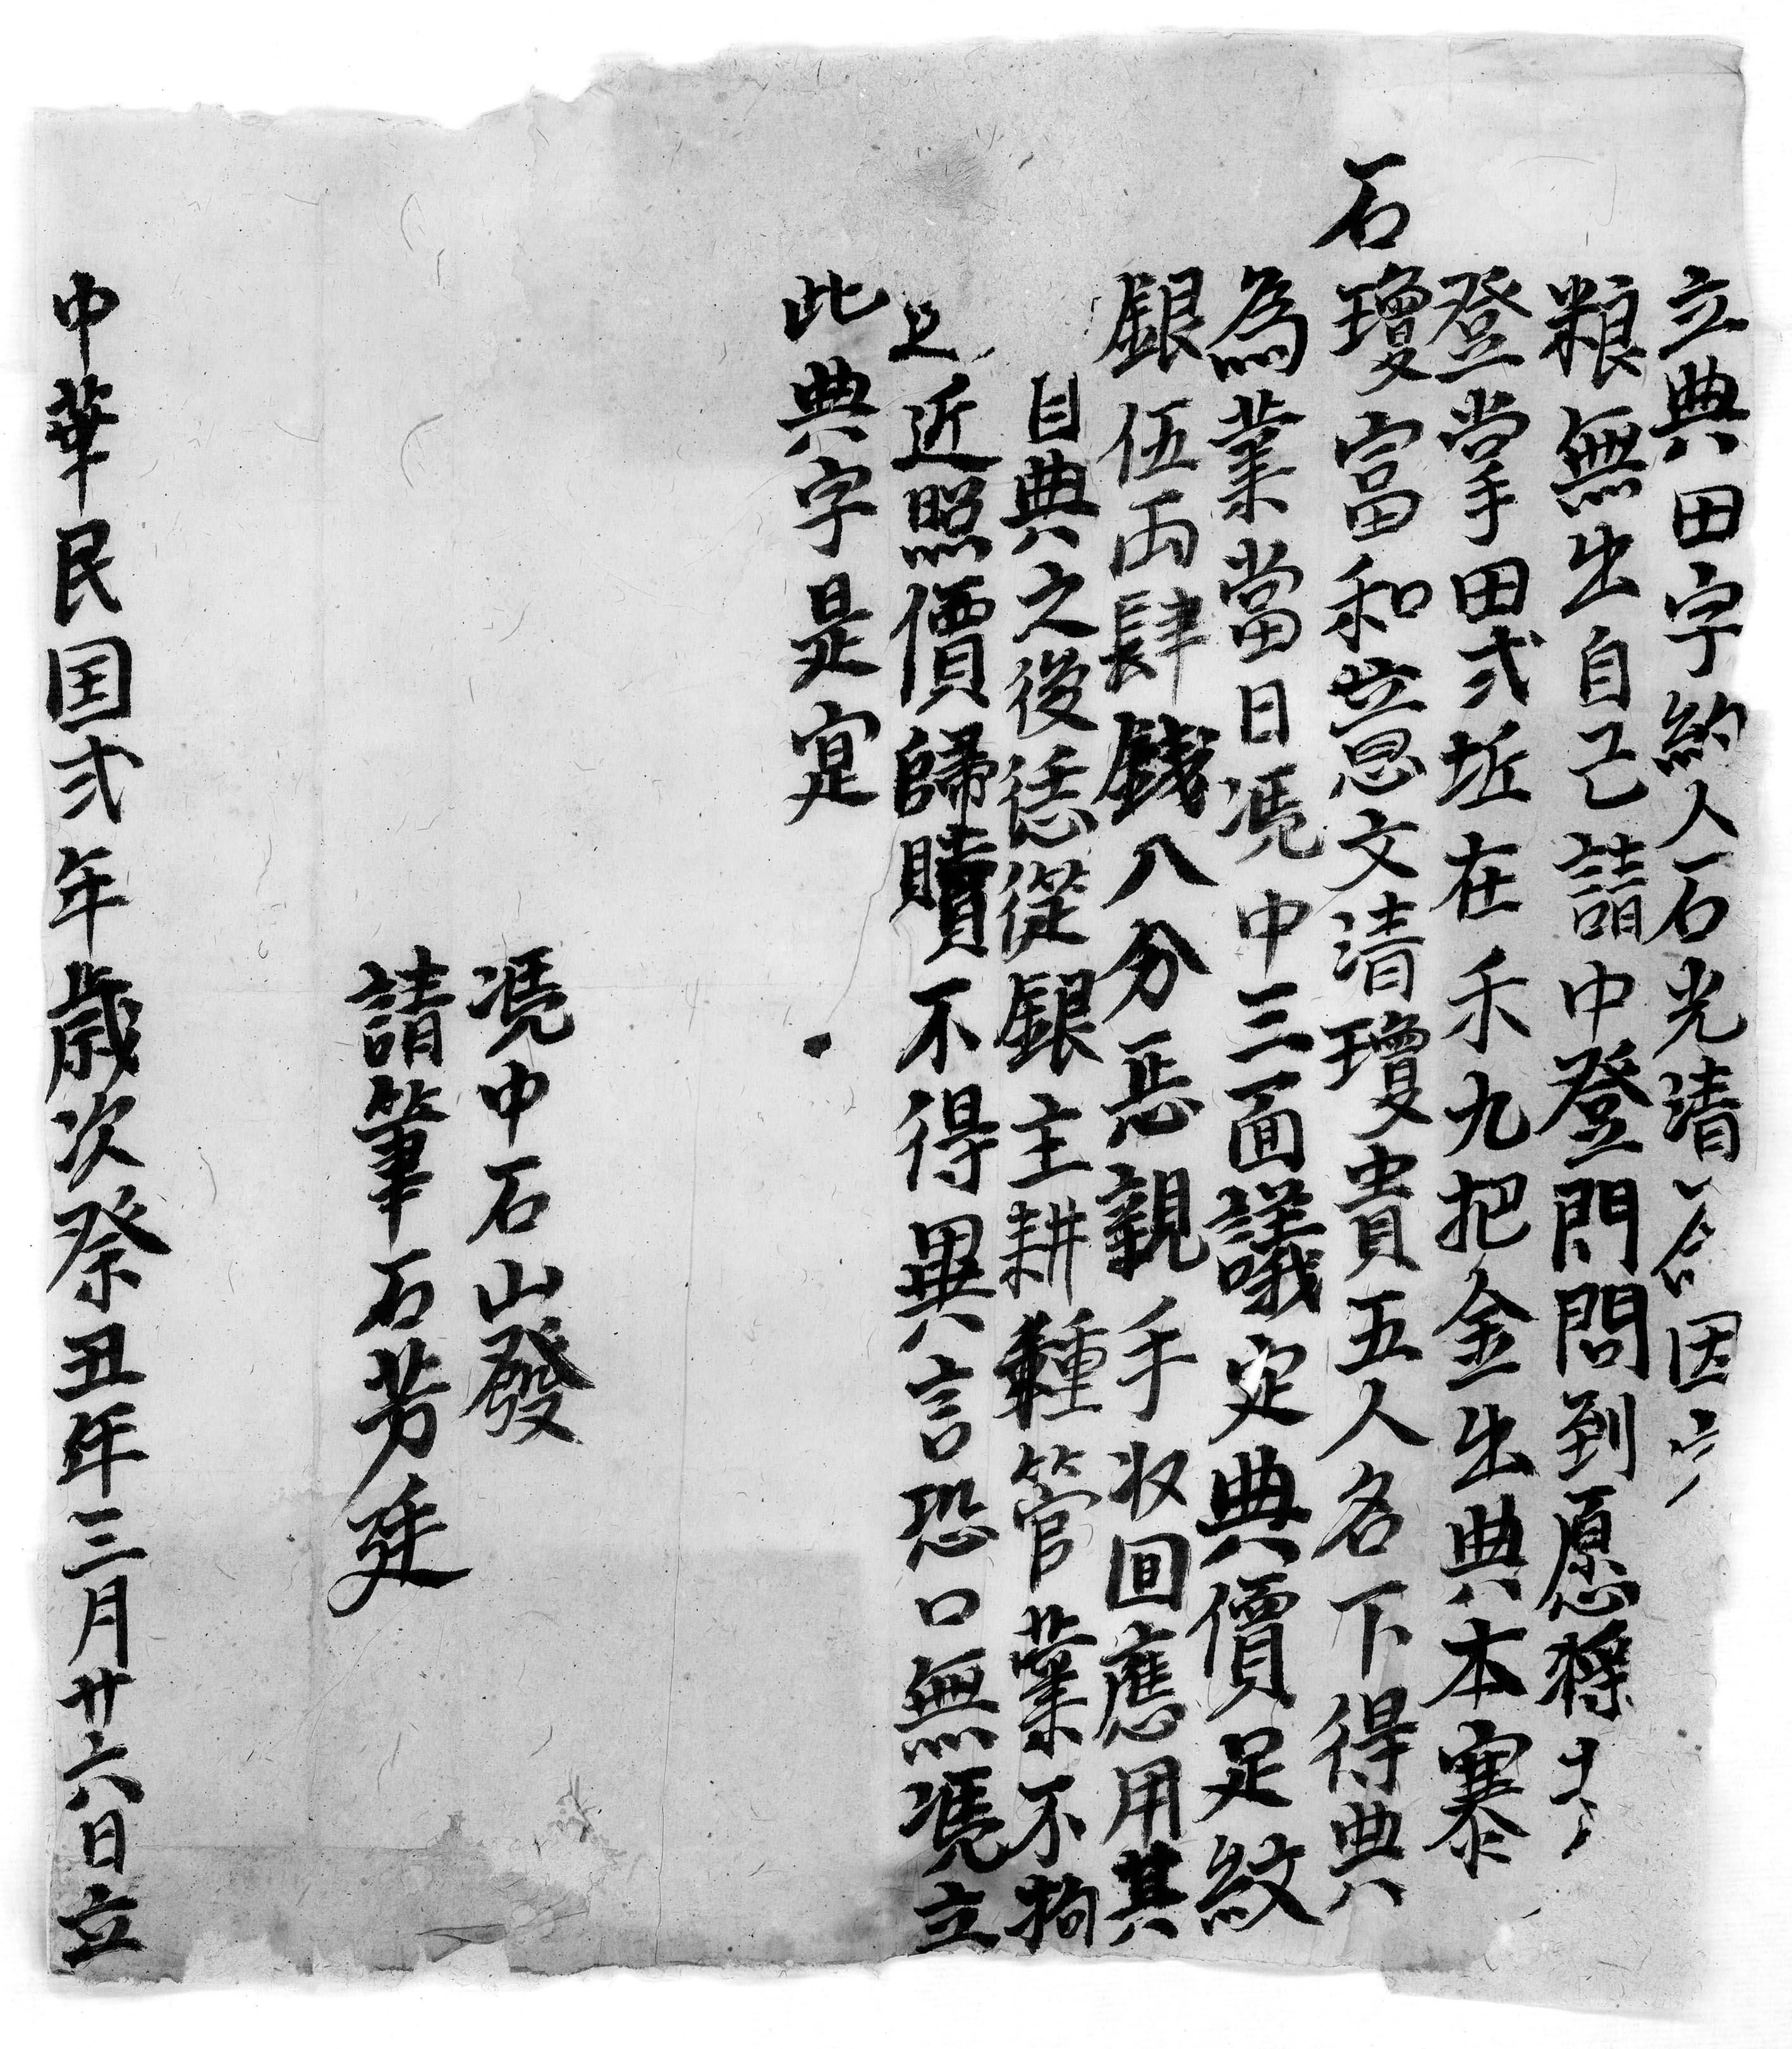 立典田字約人石光清因
粮無出自己請中登門問到愿將
登掌田弍坵在禾九把金出典本寨
石瓊富和並恩文清瓊貴五人名下得典
為業當日凴中三面議定典價足紋
銀伍両肆錢八分亲親手收回應用其
自典之後恁從銀主耕種管業不拘
近照價歸贖不得異言恐口無凴立
此典字是寔
凴中石山發
請筆石芳廷
中華民国弍年歲次祭丑年三月廿六日立